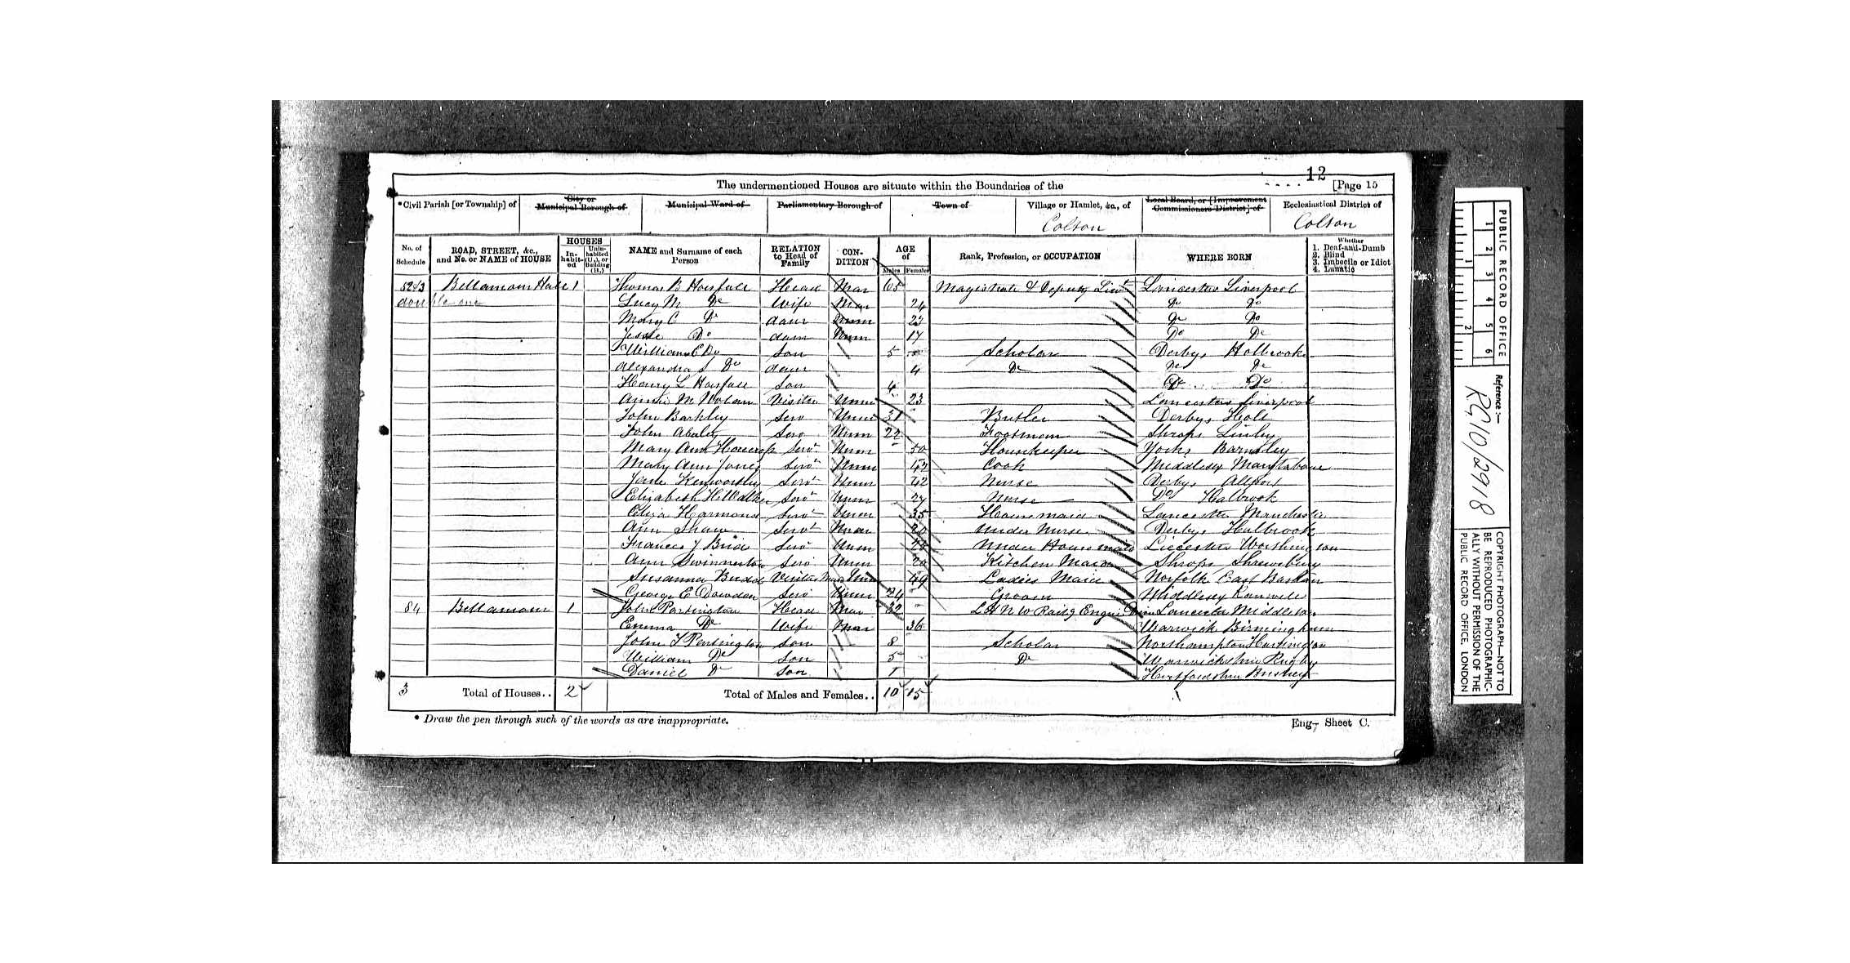 12
The undermentioned Houses are situate within the Boundaries of the [Page 15
*Civil Parish [or Township] of City or Municipal Borough of Municipal Ward of Parliamentary Borough of Town of Village or Hamlet, &c., of Local Board, or [Improvement Commissioners District] of Ecclesiastical District of
Colton Colton
No. of Schedule ROAD, STREET, &c., and No. or NAME of HOUSE HOUSES In-habit-ed Unin-habited (U.), or Building (B.) NAME and Surname of each Person RELATION to Head of Family CON-DITION AGE of Males Females Rank, Profession, or OCCUPATION WHERE BORN Whether 1. Deaf-and-Dumb 2. Blind 3. Imbecile or Idiot 4. Lunatic
Bellamour Hall 1 Thomas B Horsfall Head Mar 65 Magistrate & Deputy Lieut Lancaster Liverpool
Lucy M Do Wife Mar 24 Do Do
Mary C Do daur Unm 23 Do Do
Jessie Do daur Unm 17 Do Do
William C Do Son 5 Scholar Derbys Holbrook
Alexandra Do daur 4 Do Do Do
Henry L Horsfall Son 4 Do Do
Annie M Visitor Unm 23 Lancaster Liverpool
John Barkley Serv Unm 31 Butler Derbys Holt
John Serv Unm 22 Footman Shrops Linley
Mary Ann Servt Unm 50 Housekeeper Yorks Barnsley
Mary Ann Jones Servt Unm 42 Cook Middlesex Marylebone
Jane Kenworthy Servt Unm 42 Nurse Derbys
Elizabeth H Walker Servt Unm 27 Nurse Do Holbrook
Eliza Harmond Servt Unm 35 Housemaid Lancaster Manchester
Ann Shaw Servt Under Nurse Derby Holbrook
Frances J Bird Serv Unm Under Housemaid Leicester Worthington
Ann Swinnerton Serv Unm Kitchen Maid Shrops Shrewsbury
Susanna Budd Visitor 49 Ladies Maid Norfolk East
George E Dowden Serv Unm 24 Groom Middlesex
84 Bellamour 1 John Partington Head Mar 32 L & N W Railg Engine Lancaster Middleton
Emma Do Wife Mar 36 Warwick Birmingham
John T Partington Son 8 Scholar Northampton
William Do Son 5 Do Warwickshire Rugby
Daniel Do Son 1 Hertfordshire Bushey
3 Total of Houses.. 2 Total of Males and Females.. 10 15
* Draw the pen through such of the words as are inappropriate.
Eng.— Sheet C.
PUBLIC RECORD OFFICE
1 2 3 4 5 6
1 2
Reference:—
RG10/2918
COPYRIGHT PHOTOGRAPH—NOT TO BE REPRODUCED PHOTOGRAPHIC-ALLY WITHOUT PERMISSION OF THE PUBLIC RECORD OFFICE, LONDON